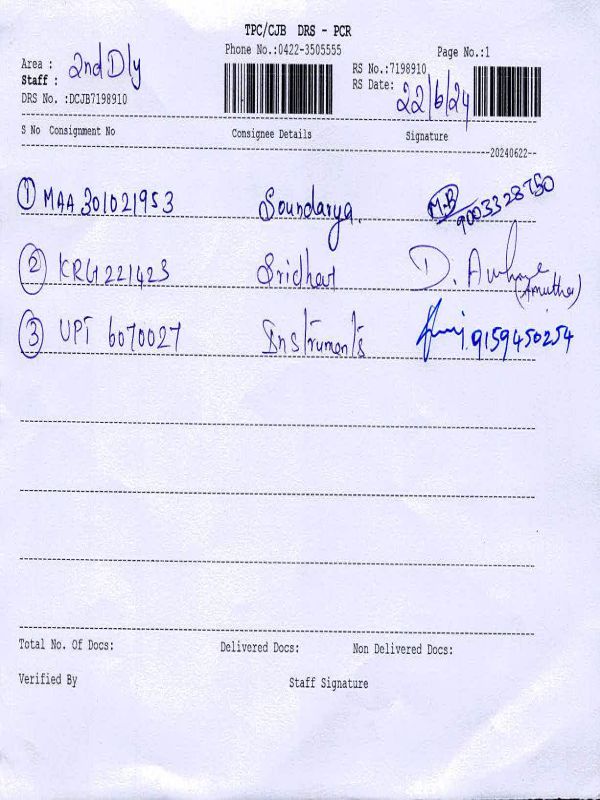 TPC/CJB DRS - PCR
Phone No.:0422-3505555 Page No.:1
Area : 2nd Dly
Staff :
RS No.:7198910
RS Date: 22/6/24
DRS No. :DCJB7198910
S No Consignment No Consignee Details Signature
20240622
1 MAA 301021953 Soundarya. M.B 9003328750
2 KRG1221423 Sridhar D. (Amutha)
3 UPT 6070027 Instruments 9159450254
Total No. Of Docs: Delivered Docs: Non Delivered Docs:
Verified By Staff Signature